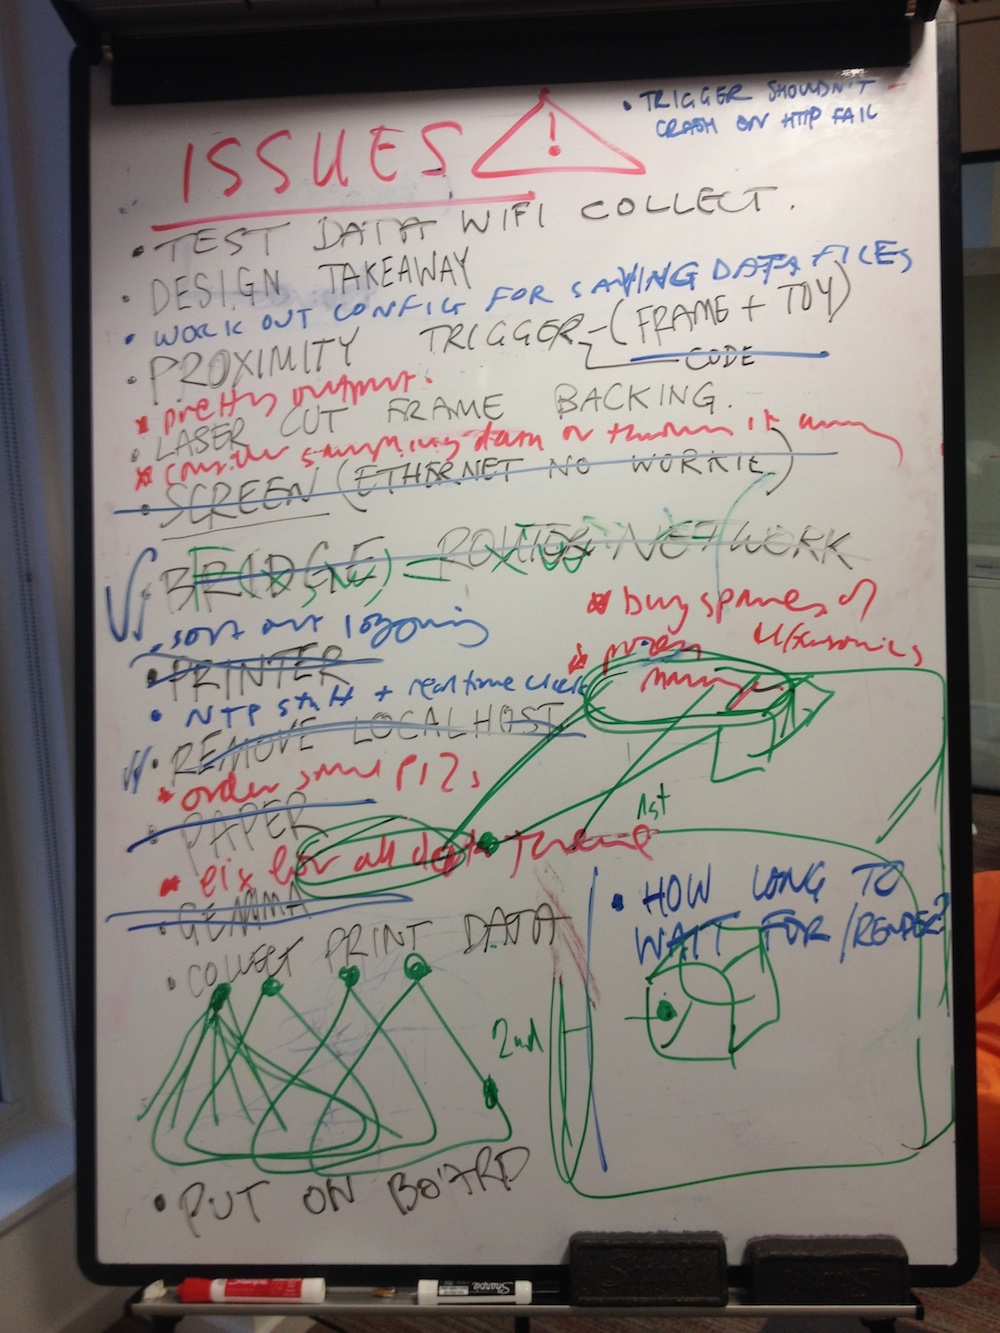 • TRIGGER SHOULDN'T
CRASH ON HTTP FAIL
ISSUES !
• TEST DATA WIFI COLLECT.
• DESIGN TAKEAWAY
• WORK OUT CONFIG FOR SAVING DATA FILES
• PROXIMITY TRIGGER - (FRAME + TOY)
CODE
* pretty output.
• LASER CUT FRAME BACKING.
* consider data or it away
• SCREEN (ETHERNET NO WORKIE)
• BRIDGE NETWORK
• sort out logging
* buy spares of
ultrasonics
• PRINTER
• NTP stuff + real time clock
• REMOVE LOCALHOST
* order some PI2s
• PAPER
1st
* for all
• GEMMA
• HOW LONG TO
WAIT FOR /RENDER?
• COLLECT PRINT DATA
2nd
• PUT ON BOARD
Sharpie